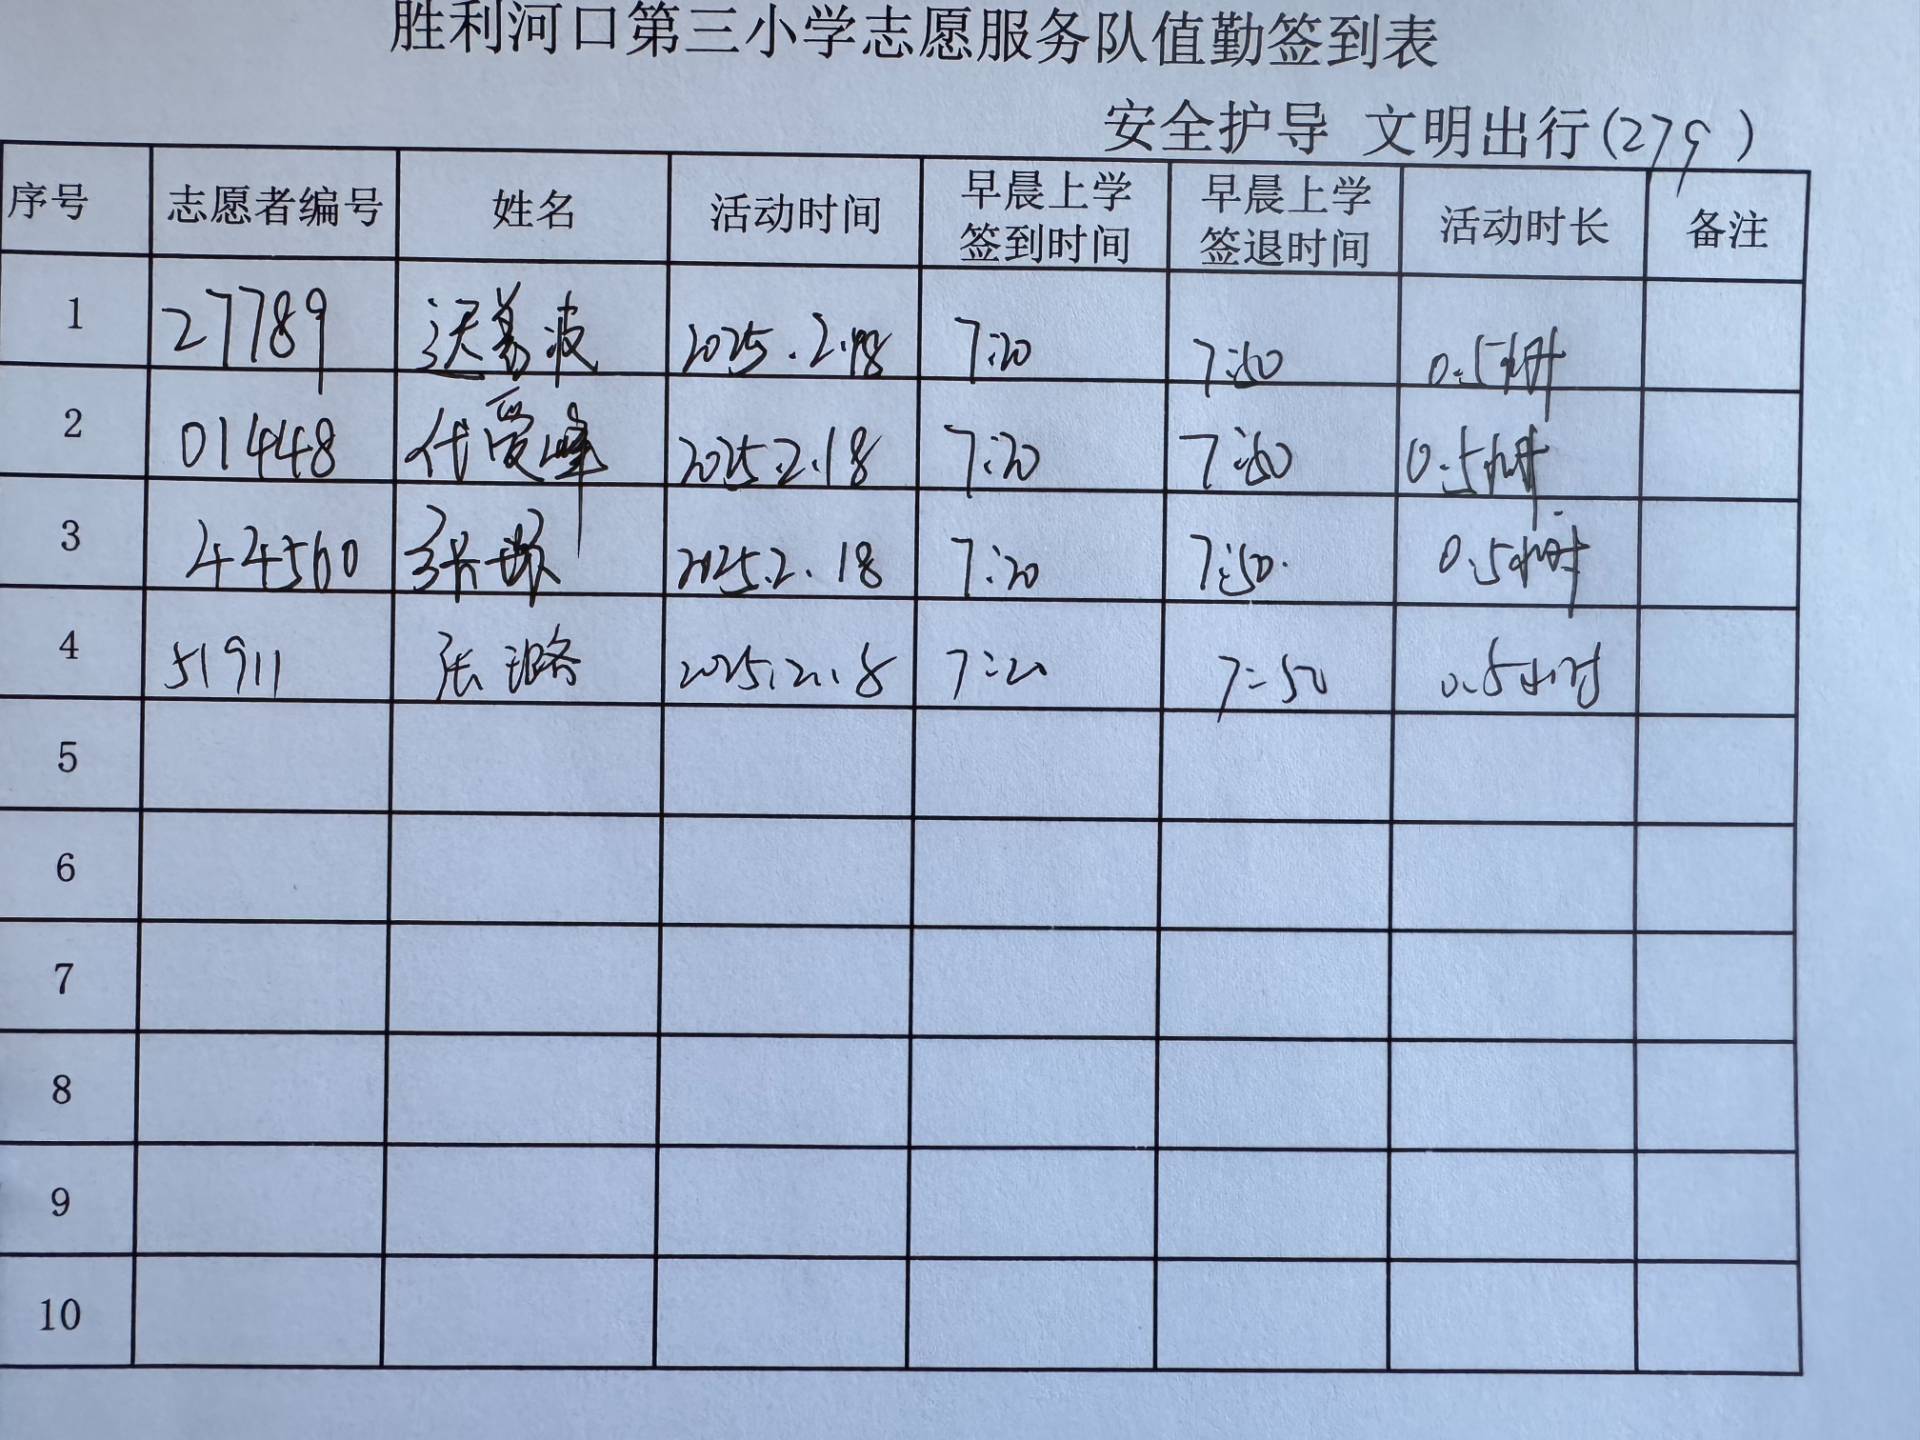 胜利河口第三小学志愿服务队值勤签到表
安全护导 文明出行(279)
序号 志愿者编号 姓名 活动时间 早晨上学签到时间 早晨上学签退时间 活动时长 备注
1 27789 波 2025.2.18 7:20 7:50 0.5小时
2 01448 代爱峰 2025.2.18 7:20 7:50 0.5小时
3 44560 2025.2.18 7:20 7:50. 0.5小时
4 51911 张璐 2025.2.18 7:20 7:50 0.5小时
5
6
7
8
9
10